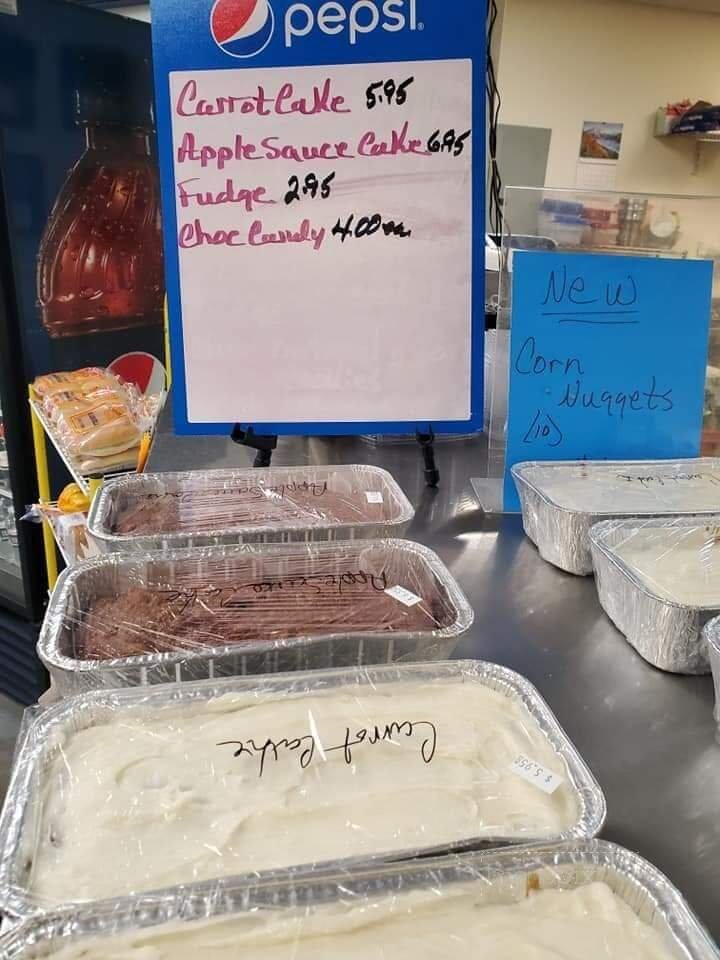 pepsi
Carrot Cake 5.95
Apple Sauce Cake 6.95
Fudge 2.95
Choc Candy 4.00 ea.
New
Corn
Nuggets
(10)
Apple Sauce Cake
Apple Sauce Cake
Carrot Cake
$ 5.95